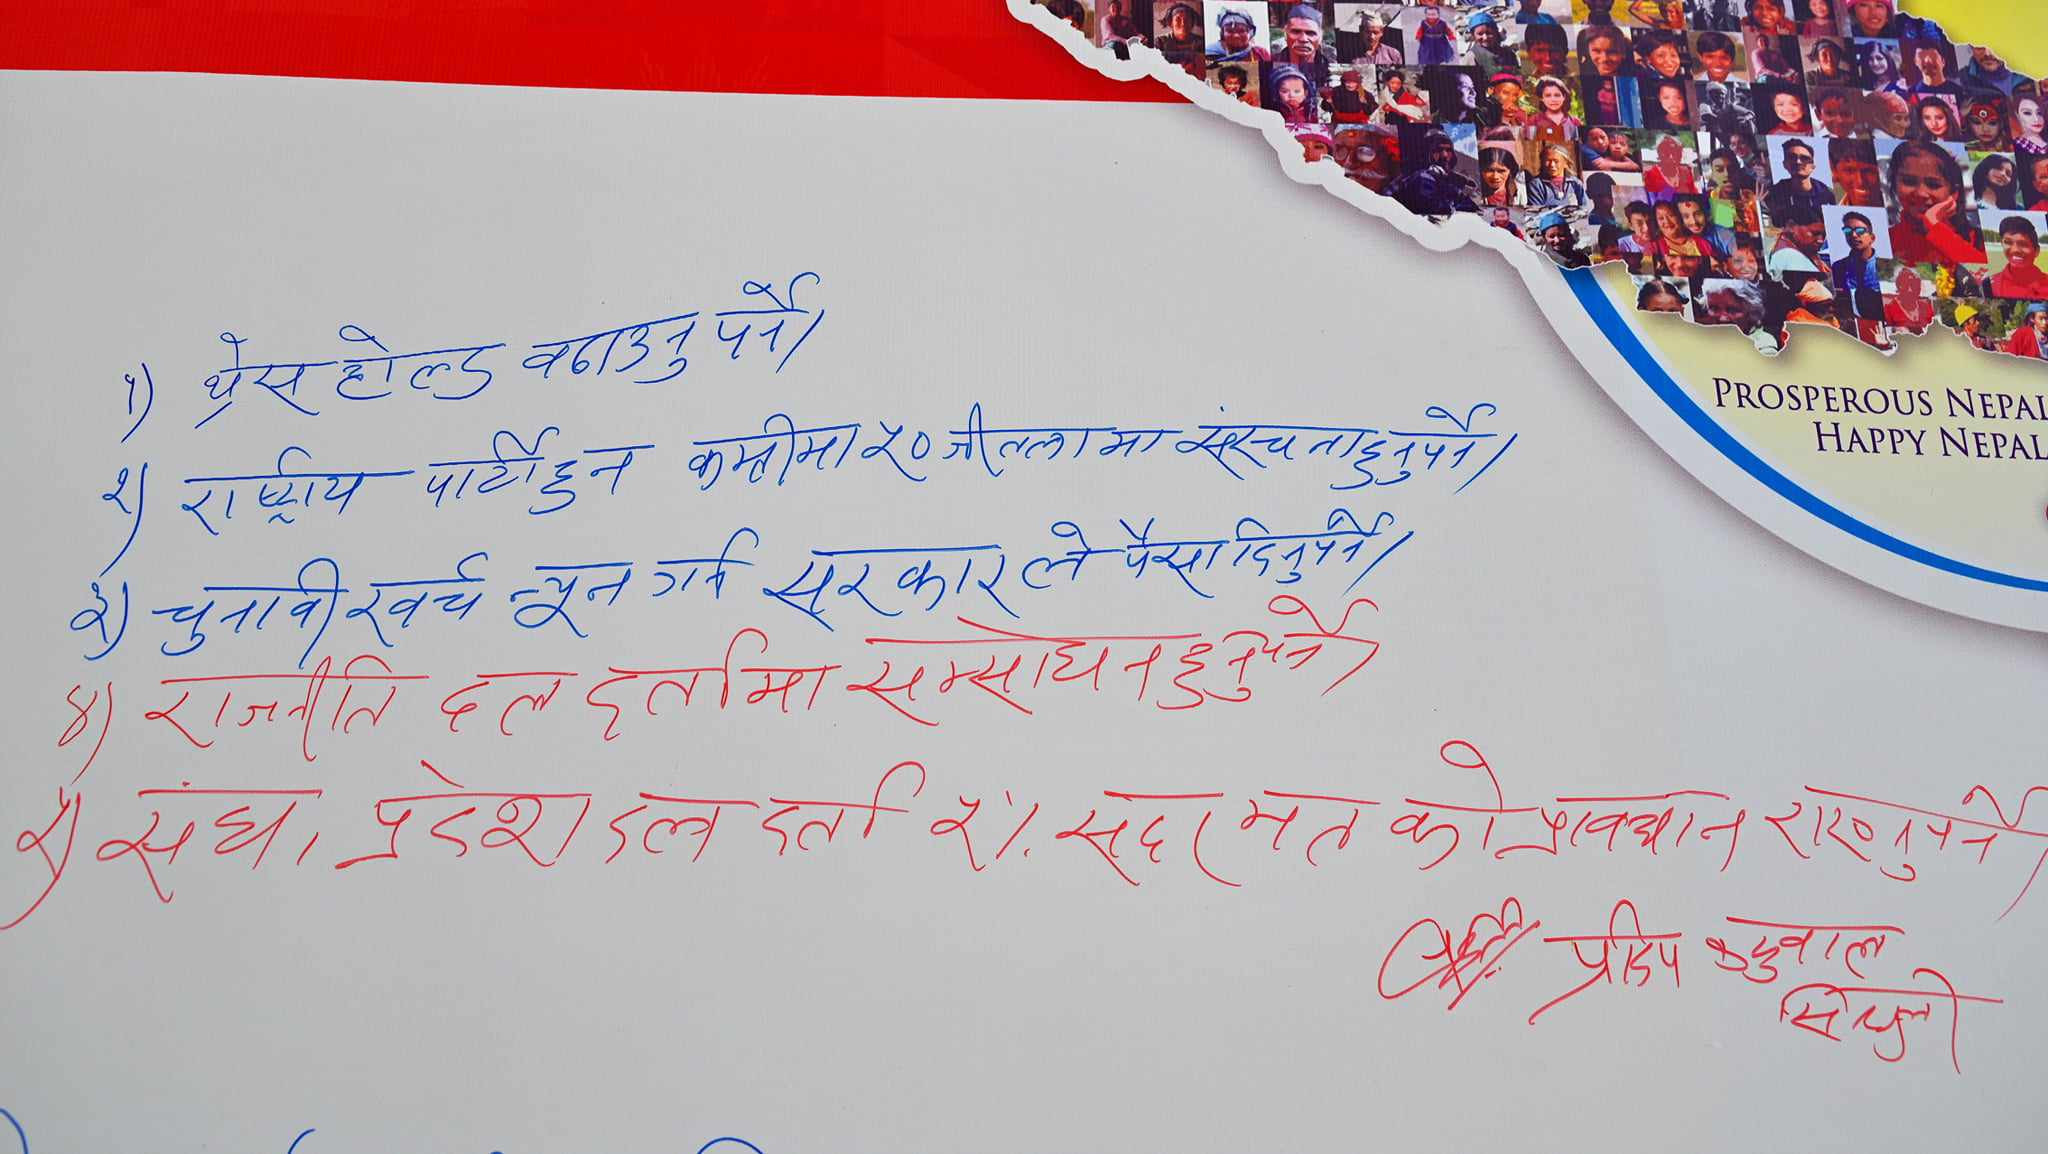 PROSPEROUS NEPAL
HAPPY NEPAL
१) थ्रेस होल्ड बढाउनु पर्ने।
२) राष्ट्रीय पार्टी हुन कम्तीमा ५० जील्लामा संरचना हुनुपर्ने।
३) चुनावी खर्च न्यून गर्न सरकारले पैसा दिनुपर्ने।
४) राजनीति दल दर्तामा सम्सोधन हुनुपर्ने।
५) संघ, प्रदेश दल दर्ता ५% सदर मत को प्रावधान राख्नुपर्ने।
प्रदिप